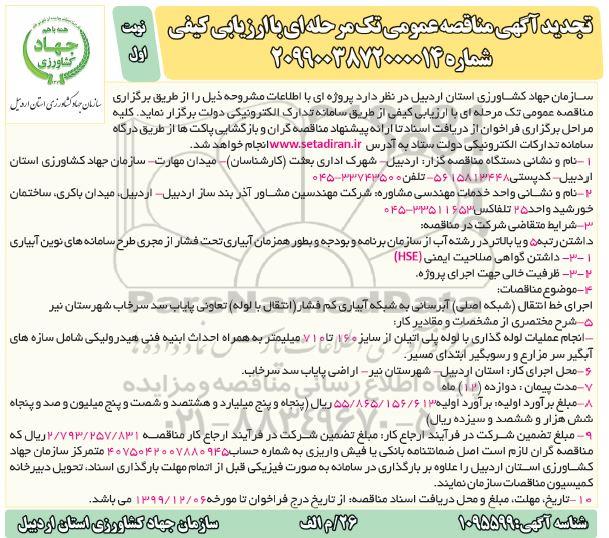 تجدید آگهی مناقصه عمومی تک مرحله ای با ارزیابی کیفی
شماره ۲۰۹۹۰۰۳۸۷۲۰۰۰۰۱۴
نوبت
اول
همه با هم
جهاد
کشاورزی
سازمان جهاد کشاورزی استان اردبیل
سازمان جهاد کشاورزی استان اردبیل در نظر دارد پروژه ای با اطلاعات مشروحه ذیل را از طریق برگزاری
مناقصه عمومی تک مرحله ای با ارزیابی کیفی از طریق سامانه تدارک الکترونیکی دولت برگزار نماید. کلیه
مراحل برگزاری فراخوان از دریافت اسناد تا ارائه پیشنهاد مناقصه گران و بازگشایی پاکت ها از طریق درگاه
سامانه تدارکات الکترونیکی دولت ستاد به آدرس www.setadiran.ir انجام خواهد شد.
۱-نام و نشانی دستگاه مناقصه گزار: اردبیل- شهرک اداری بعثت (کارشناسان)- میدان مهارت- سازمان جهاد کشاورزی استان
اردبیل- کدپستی ۵۶۱۵۸۱۳۴۴۸- تلفن ۳۳۷۴۳۵۰۰-۰۴۵
۲-نام و نشانی واحد خدمات مهندسی مشاوره: شرکت مهندسین مشاور آذر بند ساز اردبیل- اردبیل، میدان باکری، ساختمان
خورشید واحد ۲۵ تلفاکس ۳۳۵۱۱۶۵۳-۰۴۵
۳-شرایط متقاضی شرکت در مناقصه:
داشتن رتبه ۵ و یا بالاتر در رشته آب از سازمان برنامه و بودجه و بطور همزمان آبیاری تحت فشار از مجری طرح سامانه های نوین آبیاری
۳-۱- داشتن گواهی صلاحیت ایمنی (HSE)
۳-۲- ظرفیت خالی جهت اجرای پروژه.
۴-موضوع مناقصات:
اجرای خط انتقال (شبکه اصلی) آبرسانی به شبکه آبیاری کم فشار (انتقال با لوله) تعاونی پایاب سد سرخاب شهرستان نیر
۵-شرح مختصری از مشخصات و مقادیر کار:
-انجام عملیات لوله گذاری با لوله پلی اتیلن از سایز ۱۶۰ تا ۷۱۰ میلیمتر به همراه احداث ابنیه فنی هیدرولیکی شامل سازه های
آبگیر سر مزارع و رسوبگیر ابتدای مسیر.
۶-محل اجرای کار: استان اردبیل- شهرستان نیر- اراضی پایاب سد سرخاب.
۷-مدت پیمان : دوازده (۱۲) ماه
۸-مبلغ برآورد اولیه: برآورد اولیه ۵۵/۸۶۵/۱۵۶/۶۱۳ ریال (پنجاه و پنج میلیارد و هشتصد و شصت و پنج میلیون و صد و پنجاه
شش هزار و ششصد و سیزده ریال)
۹- مبلغ تضمین شرکت در فرآیند ارجاع کار: مبلغ تضمین شرکت در فرآیند ارجاع کار مناقصه ۲/۷۹۳/۲۵۷/۸۳۱ ریال که
مناقصه گران لازم است اصل ضمانتنامه بانکی یا فیش واریزی به شماره حساب ۴۰۷۵۰۴۲۰۰۷۸۸۰۹۴۵ متمرکز سازمان جهاد
کشاورزی استان اردبیل را علاوه بر بارگذاری در سامانه به صورت فیزیکی قبل از اتمام مهلت بارگذاری اسناد، تحویل دبیرخانه
کمیسیون مناقصات سازمان نمایند.
۱۰-تاریخ، مهلت، مبلغ و محل دریافت اسناد مناقصه: از تاریخ درج فراخوان تا مورخه ۱۳۹۹/۱۲/۰۶ می باشد.
شناسه آگهی: ۱۰۹۵۵۹۹
۲۶/م الف
سازمان جهاد کشاورزی استان اردبیل